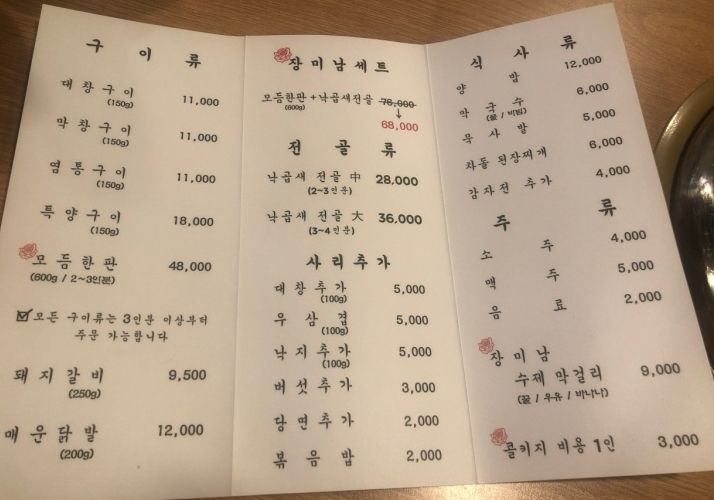 구이류
대창구이 11,000
(150g)
막창구이 11,000
(150g)
염통구이 11,000
(150g)
특양구이 18,000
(150g)
모듬한판 48,000
(600g / 2~3인분)
모든 구이류는 3인분 이상부터
주문 가능합니다
돼지갈비 9,500
(250g)
매운닭발 12,000
(200g)
장미남세트
모듬한판+낙곱새전골 76,000
(600g)
↓
68,000
전골류
낙곱새 전골 中 28,000
(2~3인분)
낙곱새 전골 大 36,000
(3~4인분)
사리추가
대창추가 5,000
(100g)
우삼겹 5,000
(100g)
낙지추가 5,000
(100g)
버섯추가 3,000
당면추가 2,000
볶음밥 2,000
식사류
양밥 12,000
막국수 6,000
(물 / 비빔)
묵사발 5,000
차돌 된장찌개 6,000
감자전 추가 4,000
주류
소주 4,000
맥주 5,000
음료 2,000
장미남
수제 막걸리 9,000
(꿀 / 우유 / 바나나)
콜키지 비용 1인 3,000